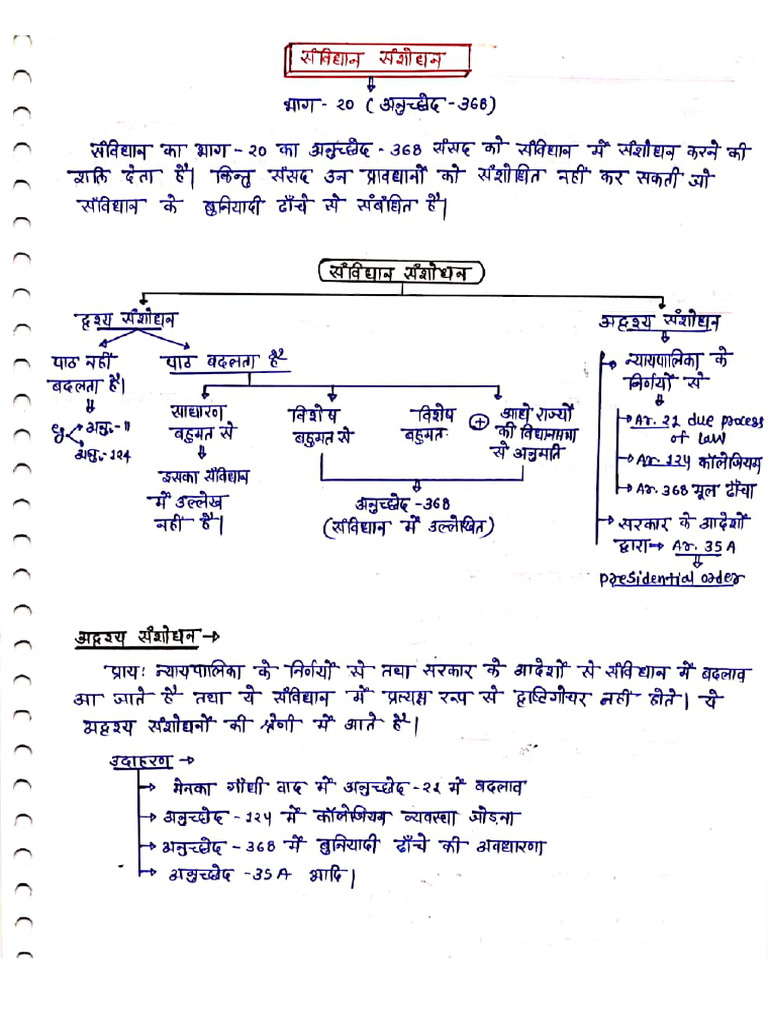 संविधान संशोधन
भाग - 20 ( अनुच्छेद - 368)
संविधान का भाग - 20 का अनुच्छेद - 368 संसद को संविधान में संशोधन करने की
शक्ति देता है। किन्तु संसद उन प्रावधानों को संशोधित नहीं कर सकती जो
संविधान के बुनियादी ढाँचे से संबंधित है।
संविधान संशोधन
दृश्य संशोधन
अदृश्य संशोधन
पाठ नहीं
बदलता है।
पाठ बदलता है
eg अनु.-11
अनु.-124
साधारण
बहुमत से
इसका संविधान
में उल्लेख
नहीं है।
विशेष
बहुमत से
विशेष
बहुमत
+
आधे राज्यों
की विधानसभा
से अनुमति
अनुच्छेद -368
(संविधान में उल्लेखित)
न्यायपालिका के
निर्णयों से
Ar. 21 due process
of law
Ar. 124 कॉलेजियम
Ar. 368 मूल ढाँचा
सरकार के आदेशों
द्वारा→ Ar. 35A
presidential order
अदृश्य संशोधन →
प्रायः न्यायपालिका के निर्णयों से तथा सरकार के आदेशों से संविधान में बदलाव
आ जाते है तथा ये संविधान में प्रत्यक्ष रूप से दृष्टिगोचर नहीं होते। ये
अदृश्य संशोधनों की श्रेणी में आते है।
उदाहरण →
मेनका गाँधी वाद में अनुच्छेद -21 में बदलाव
अनुच्छेद - 124 में कॉलेजियम व्यवस्था जोड़ना
अनुच्छेद - 368 में बुनियादी ढाँचे की अवधारणा
अनुच्छेद -35A आदि।